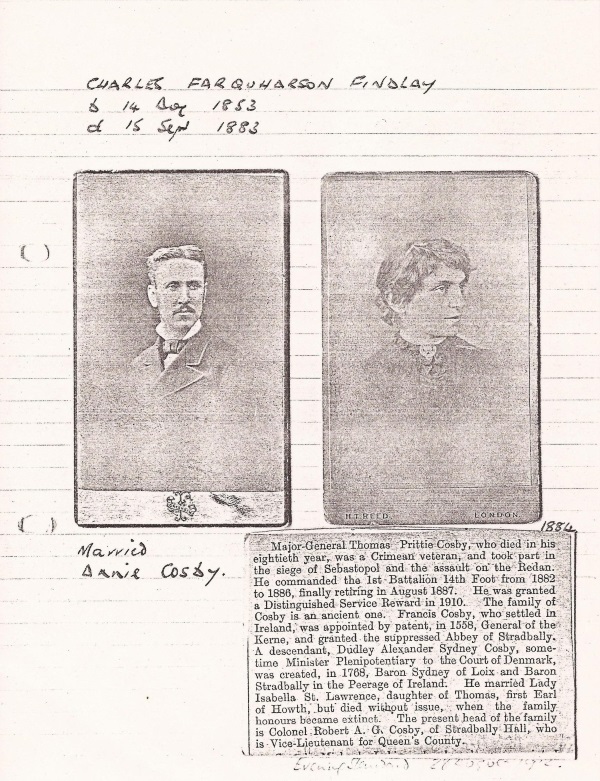 CHARLES FARQUHARSON FINDLAY
b 14 Aug 1853
d 15 Sept 1883
H.T. REED LONDON
1884
Married
Annie Cosby.
Major-General Thomas Prittie Cosby, who died in his
eightieth year, was a Crimean veteran, and took part in
the siege of Sebastopol and the assault on the Redan.
He commanded the 1st Battalion 14th Foot from 1882
to 1886, finally retiring in August 1887. He was granted
a Distinguished Service Reward in 1910. The family of
Cosby is an ancient one. Francis Cosby, who settled in
Ireland, was appointed by patent, in 1558, General of the
Kerne, and granted the suppressed Abbey of Stradbally.
A descendant, Dudley Alexander Sydney Cosby, some-
time Minister Plenipotentiary to the Court of Denmark,
was created, in 1768, Baron Sydney of Loix and Baron
Stradbally in the Peerage of Ireland. He married Lady
Isabella St. Lawrence, daughter of Thomas, first Earl
of Howth, but died without issue, when the family
honours became extinct. The present head of the family
is Colonel Robert A. G. Cosby, of Stradbally Hall, who
is Vice-Lieutenant for Queen's County.
Evening Standard